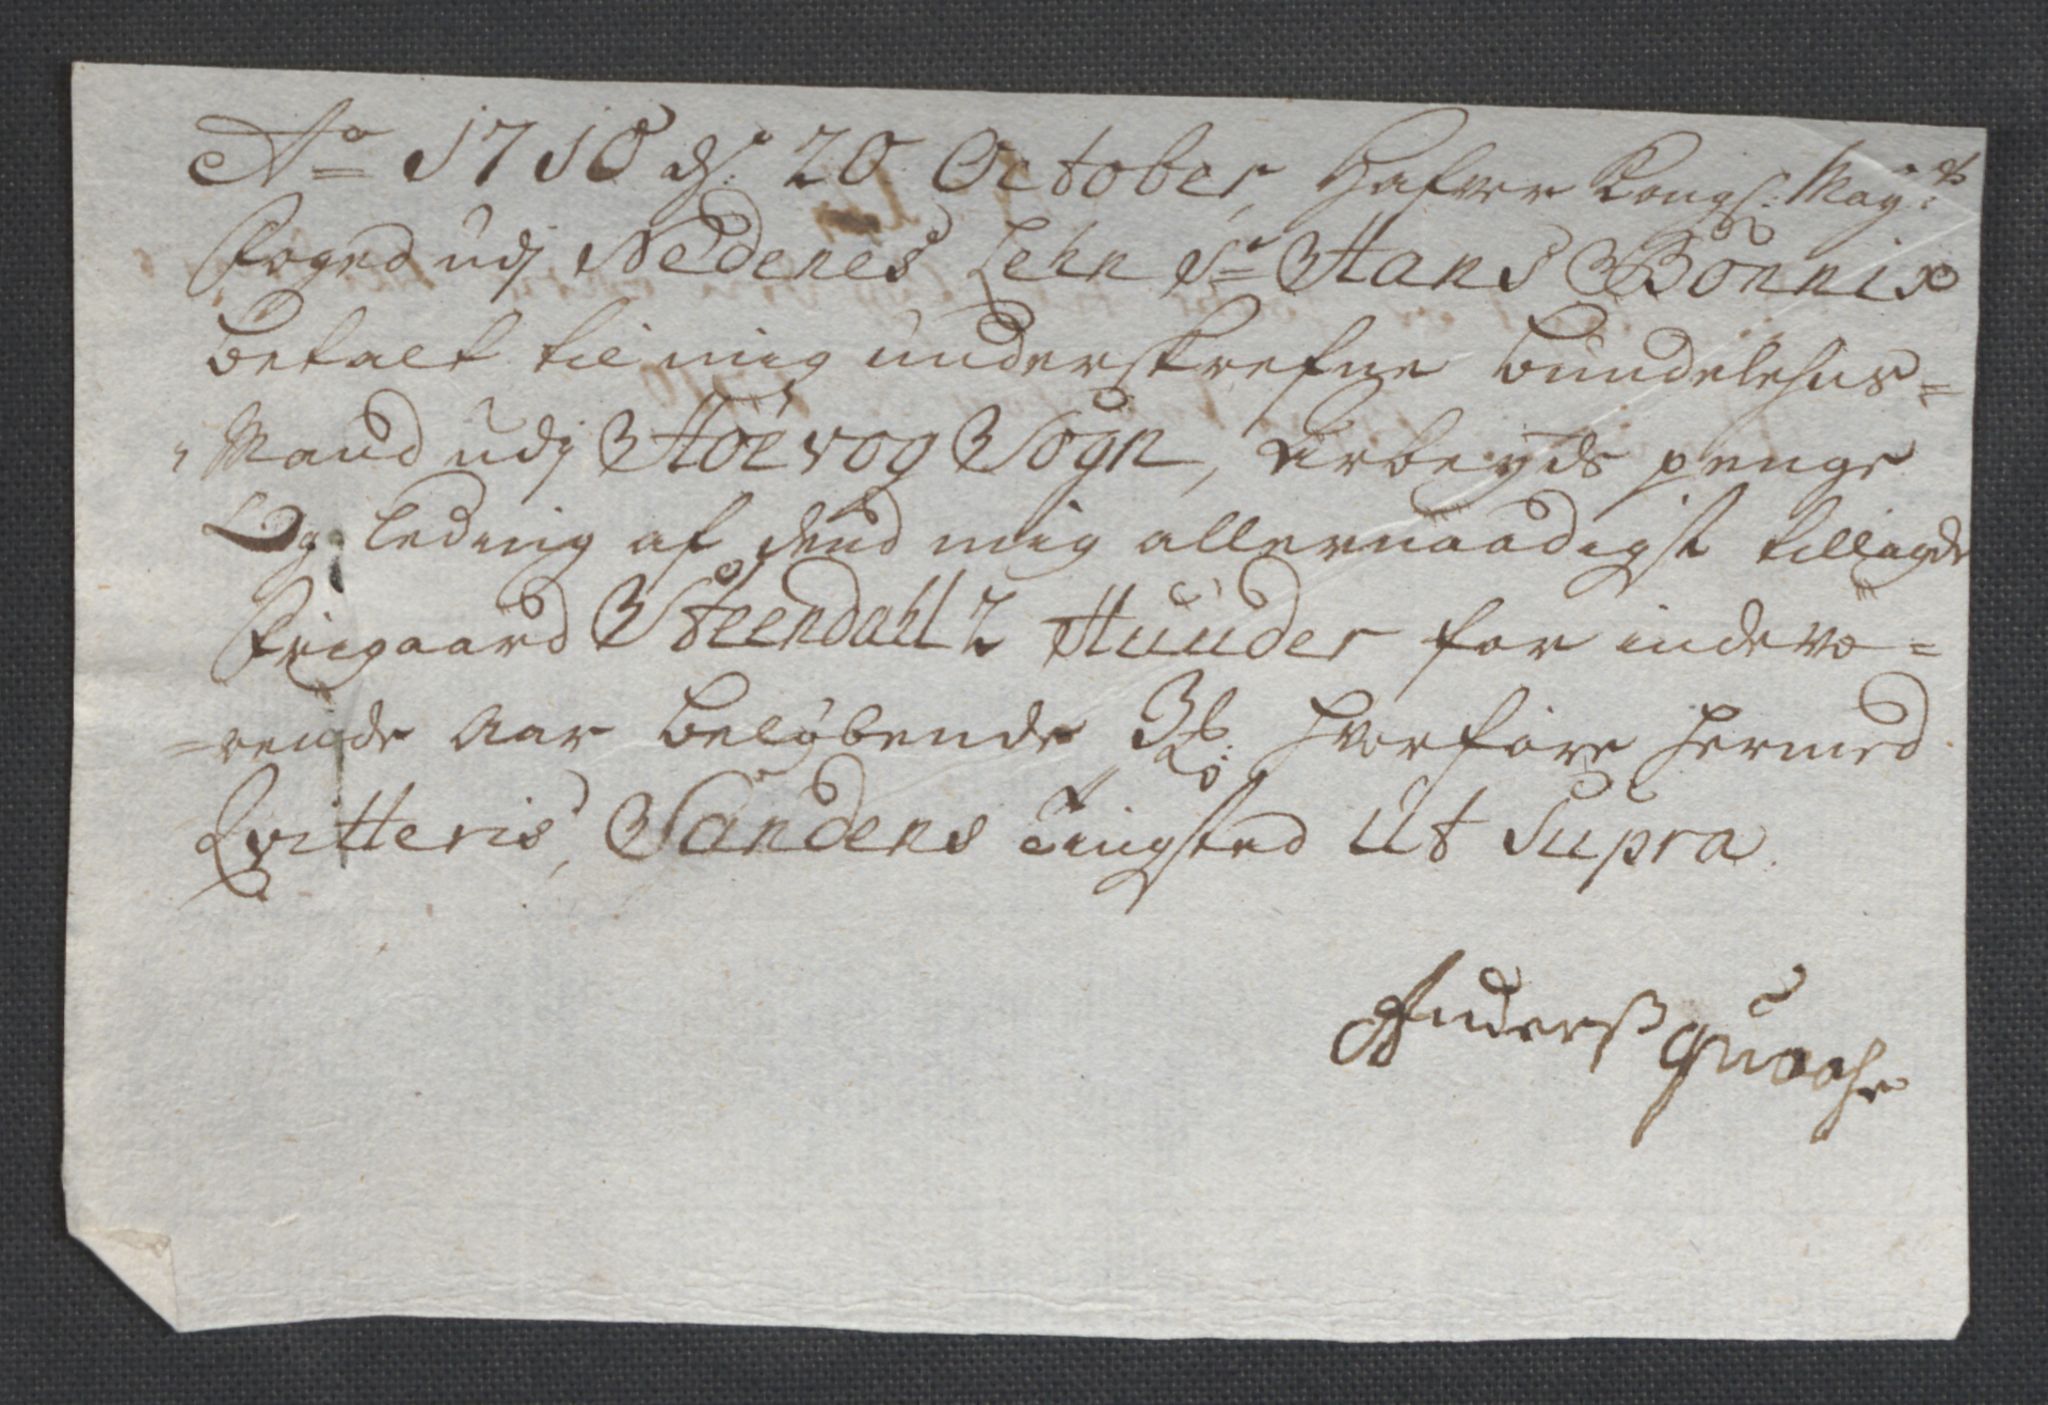 Ao 1710 d: 20 October, Hafver Kongl: May:ts
Foged udj Nedenes Lehn Sr Hans Bönnix
betalt til mig underskrefne bundelehns=
Mand udj Höevog Sogn, Arbeyds penge
Og leding af dend mig allernaadigst tillagde
Friegaard Steendahl 2 Huuder for indevæ=
=rende Aar beløbende 3 hvorfore hermed
Qvitteris, Sandens Tingsted Ut Supra.
Anderß